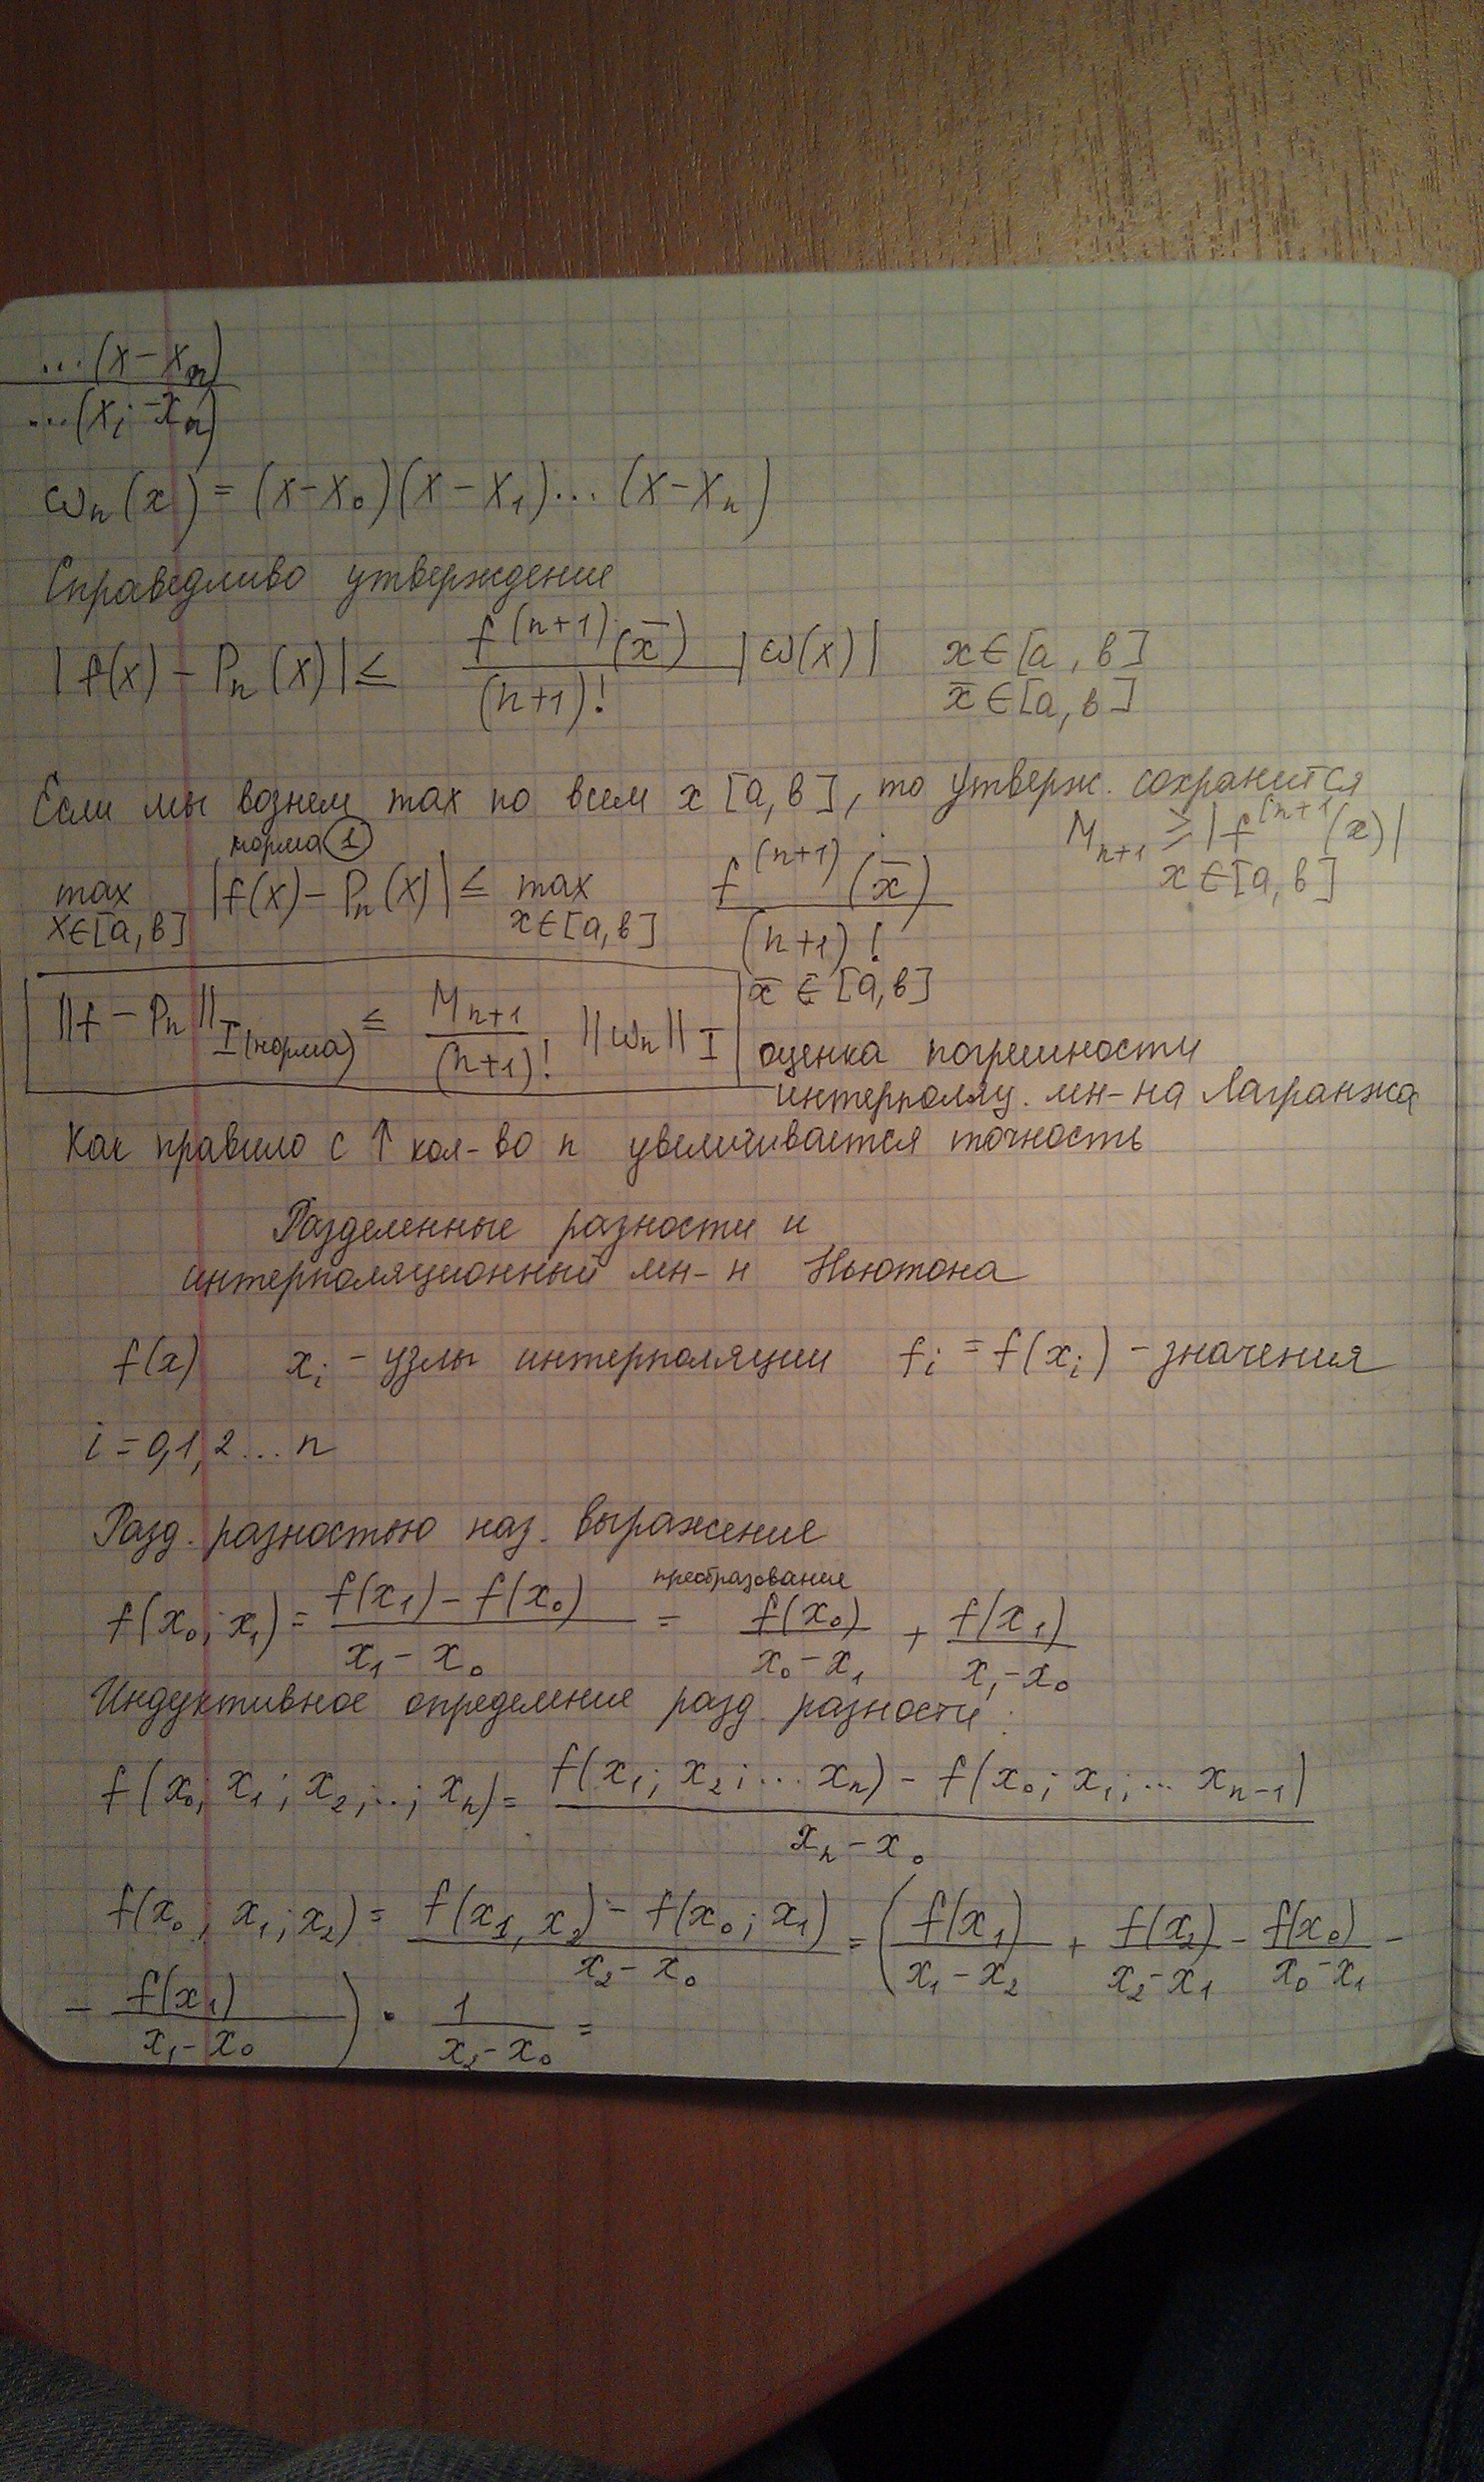 ...(x-xₙ)
...(xᵢ-xₙ)
ωₙ(x) = (x-x₀)(x-x₁)...(x-xₙ)
Справедливо утверждение
|f(x) - Pₙ(x)| ≤ f⁽ⁿ⁺¹⁾(x̄) / (n+1)! |ω(x)| x∈[a, в]
x̄∈[a, в]
Если мы вознем max по всем x [a, в], то утверж. сохранится
норма ① Mₙ₊₁ ≥ |f⁽ⁿ⁺¹(x)|
x∈[a, в]
max x∈[a, в] |f(x) - Pₙ(x)| ≤ max x∈[a, в] f⁽ⁿ⁺¹⁾(x̄) / (n+1)!
x̄ ∈ [a, в]
||f - Pₙ|| I(норма) ≤ Mₙ₊₁ / (n+1)! ||ωₙ|| I оценка погрешности
интерполяц. мн-на Лагранжа
Как правило с ↑ кол-во n увеличивается точность
Разделенные разности и
интерполяционный мн-н Ньютона
f(x) xᵢ - узлы интерполяции fᵢ = f(xᵢ) - значения
i = 0,1,2...n
Разд. разностью наз. выражение
преобразование
f(x₀; x₁) = f(x₁) - f(x₀) / x₁ - x₀ = f(x₀) / x₀ - x₁ + f(x₁) / x₁ - x₀
Индуктивное определение разд. разности:
f(x₀; x₁; x₂;..; xₙ) = f(x₁; x₂;... xₙ) - f(x₀; x₁;... xₙ₋₁) / xₙ - x₀
f(x₀; x₁; x₂) = f(x₁, x₂) - f(x₀; x₁) / x₂ - x₀ = (f(x₁) / x₁ - x₂ + f(x₂) / x₂ - x₁ - f(x₀) / x₀ - x₁ -
- f(x₁) / x₁ - x₀) · 1 / x₂ - x₀ =